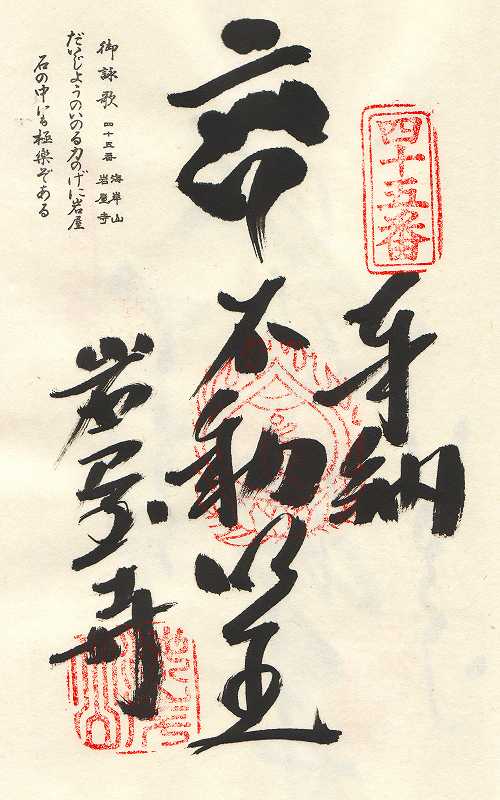 四十五番
奉納
不動明王
岩屋寺
御詠歌 四十五番 海岸山
岩屋寺
だいじようのいのる力のげに岩屋
石の中にも極楽ぞある